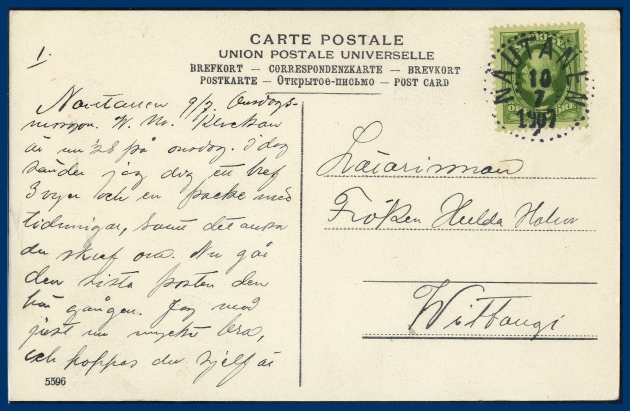 1.
CARTE POSTALE
UNION POSTALE UNIVERSELLE
BREFKORT — CORRESPONDENZKARTE — BREVKORT
POSTKARTE — Открытое-письмо — POST CARD
NAUTANEN
10
7
1907
Nautanen 9/7. Onsdags-
morgon. Klockan
är nu på onsdag. i dag
sänder jag dig ett bref
3 vyer och en packe med
tidningar, samt det andra
du skref om. Nu går
den sista posten den
här gången. Jag mår
just nu mycket bra,
och hoppas du sjelf är
Lärarinnan
Fröken Hulda
Wittangi
5596